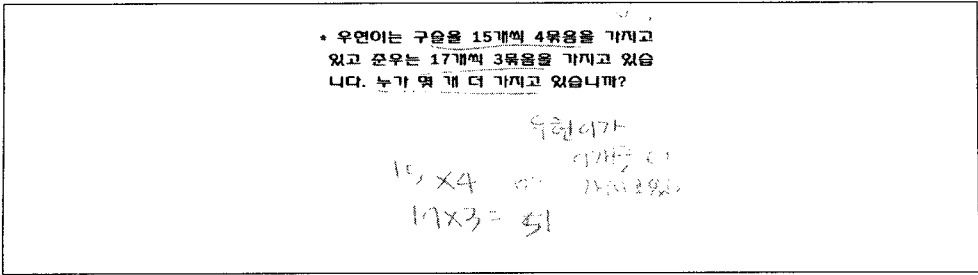 * 우연이는 구슬을 15개씩 4묶음을 가지고
있고 준우는 17개씩 3묶음을 가지고 있습
니다. 누가 몇 개 더 가지고 있습니까?
우현이가
15 ×4
17×3= 51